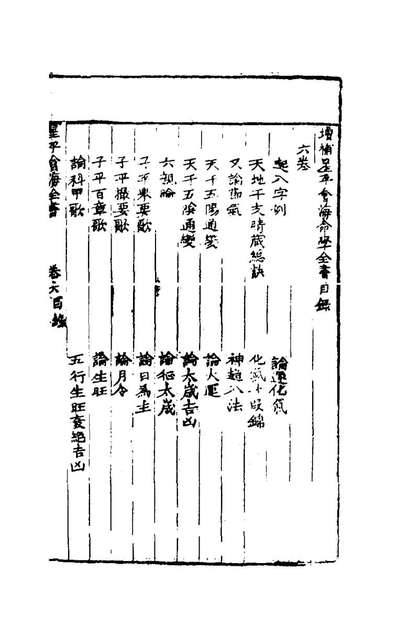 增補星平會海命學全書目錄
六卷
起八字例 論運化氣
天地干支時藏總訣 化氣十段錦
又論陽氣 神趣八法
天干五陽通變 論大運
天干五陰通變 論太歲吉凶
六親論 論征太歲
子平舉要歌 論日為主
子平撮要歌 論月令
子平百章歌 論生旺
論科甲歌 五行生旺衰絕吉凶
星平會海全書 卷六目錄